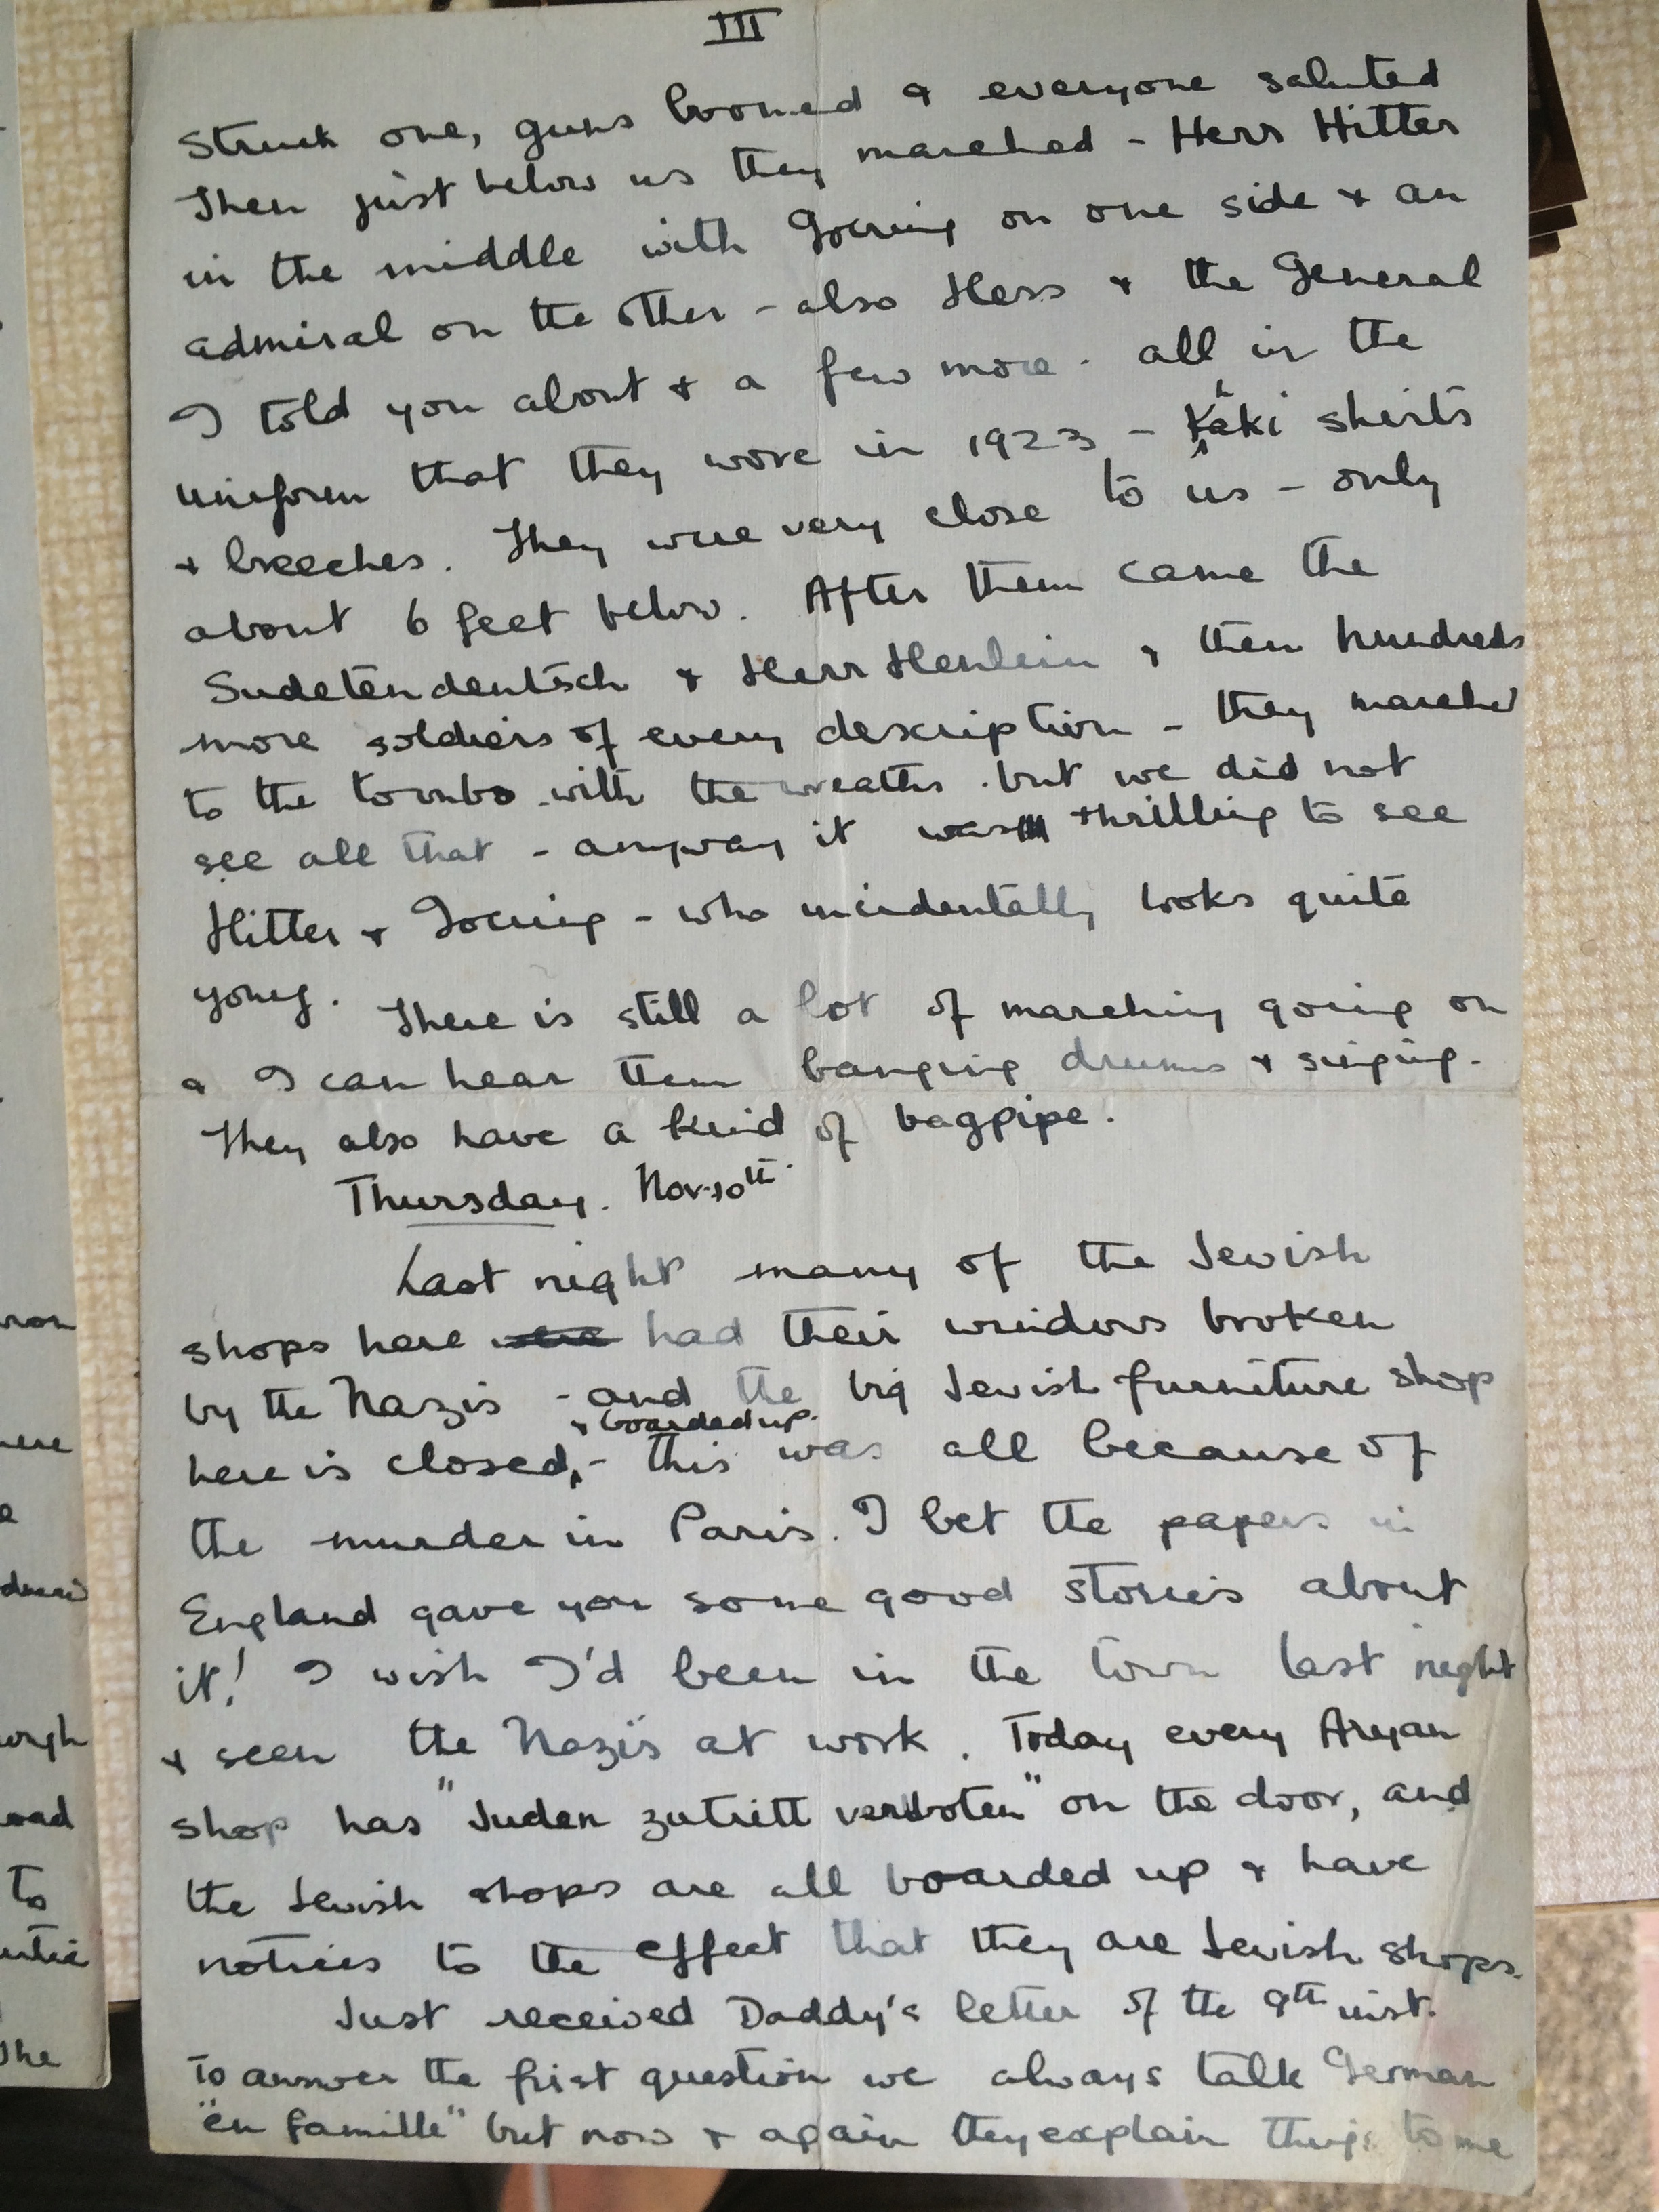 III
struck one, guns boomed & everyone saluted
Then just below us they marched - Herr Hitler
in the middle with Goering on one side & an
admiral on the other - also Hess & the General
I told you about & a few more - all in the
uniform that they wore in 1923 - Khaki shirts
& breeches. They were very close to us - only
about 6 feet below. After them came the
Sudetendeutsch & Herr Henlein & then hundreds
more soldiers of every description - they marched
to the tombs with the wreaths - but we did not
see all that - anyway it was thrilling to see
Hitler & Goering - who incidentally looks quite
young. There is still a lot of marching going on
& I can hear them banging drums & singing.
They also have a kind of bagpipe.
Thursday. Nov. 10th.
Last night many of the Jewish
shops here were had their windows broken
by the Nazis - and the big Jewish furniture shop
& boarded up.
here is closed, - this was all because of
the murder in Paris. I bet the papers in
England gave you some good stories about
it! I wish I'd been in the town last night
& seen the Nazis at work. Today every Aryan
shop has "Juden zutritt verboten" on the door, and
the Jewish shops are all boarded up & have
notices to the effect that they are Jewish shops.
Just received Daddy's letter of the 9th inst.
To answer the first question we always talk German
"en famille" but now & again they explain things to me
ere
oad
to
The